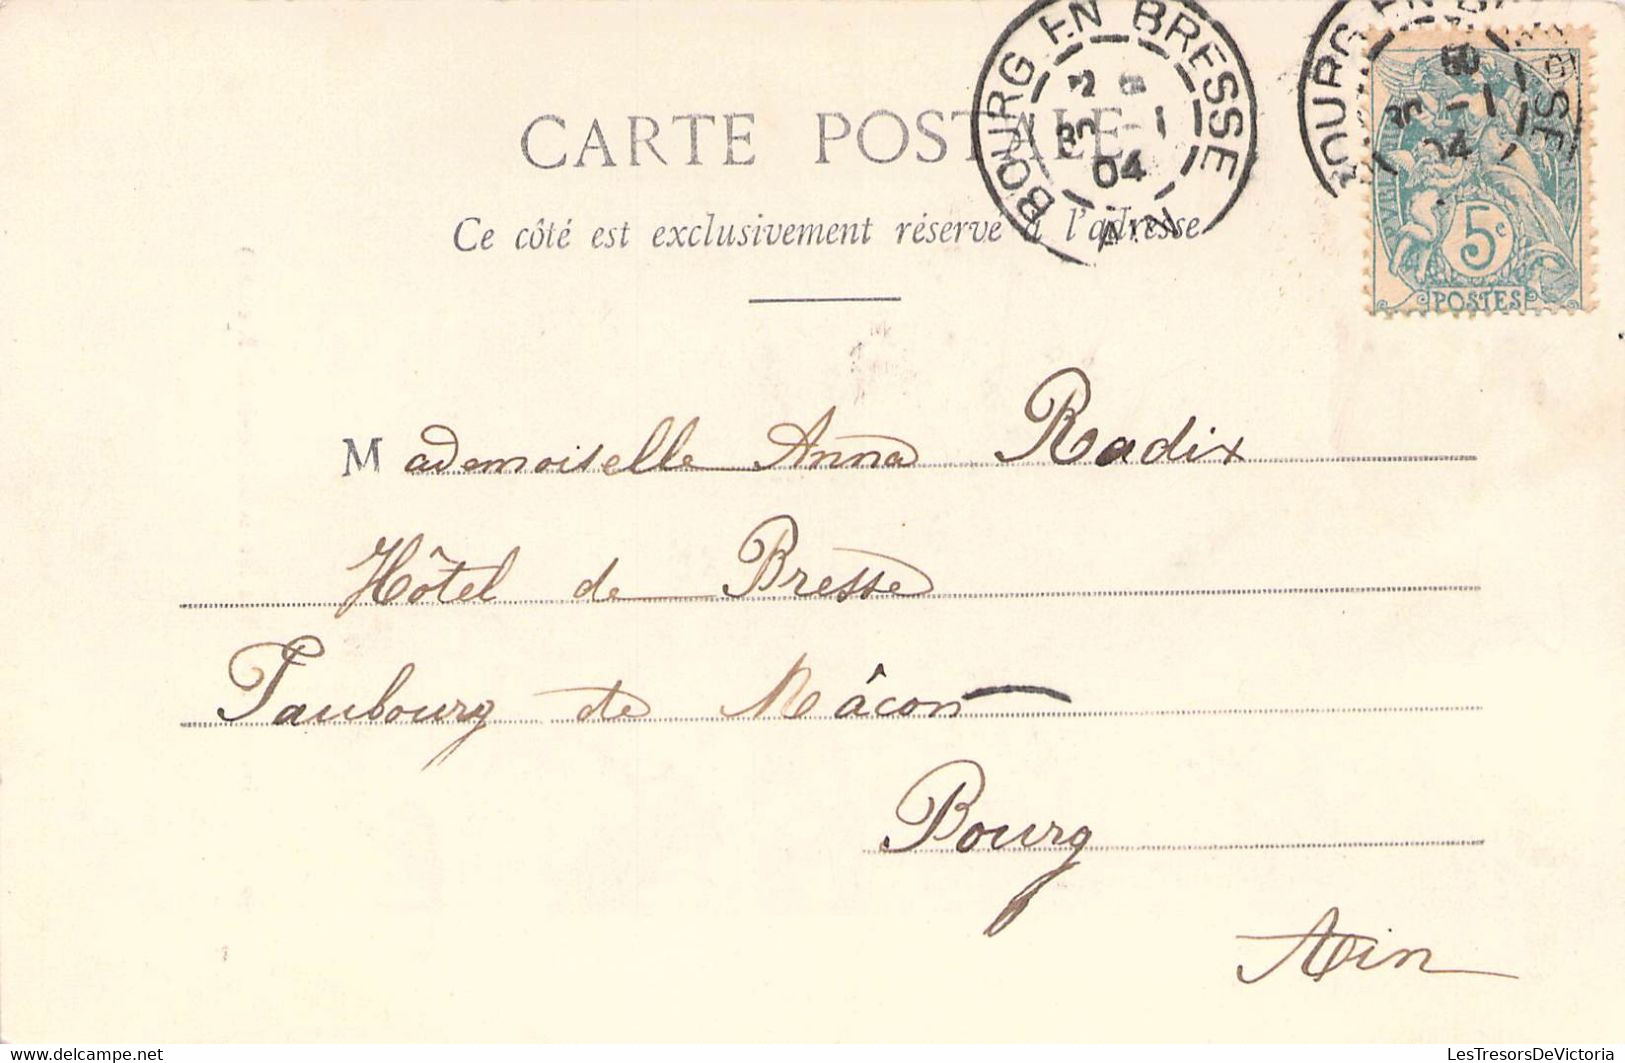 BOURG EN BRESSE
2
30 -1
04
AIN
30 -1
04
CARTE POSTALE
Ce côté est exclusivement réservé à l'adresse
5c
POSTES
Mademoiselle Anna Radix
Hôtel de Bresse
Faubourg de Mâcon
Bourg
Ain
delcampe.net
LesTresorsDeVictoria